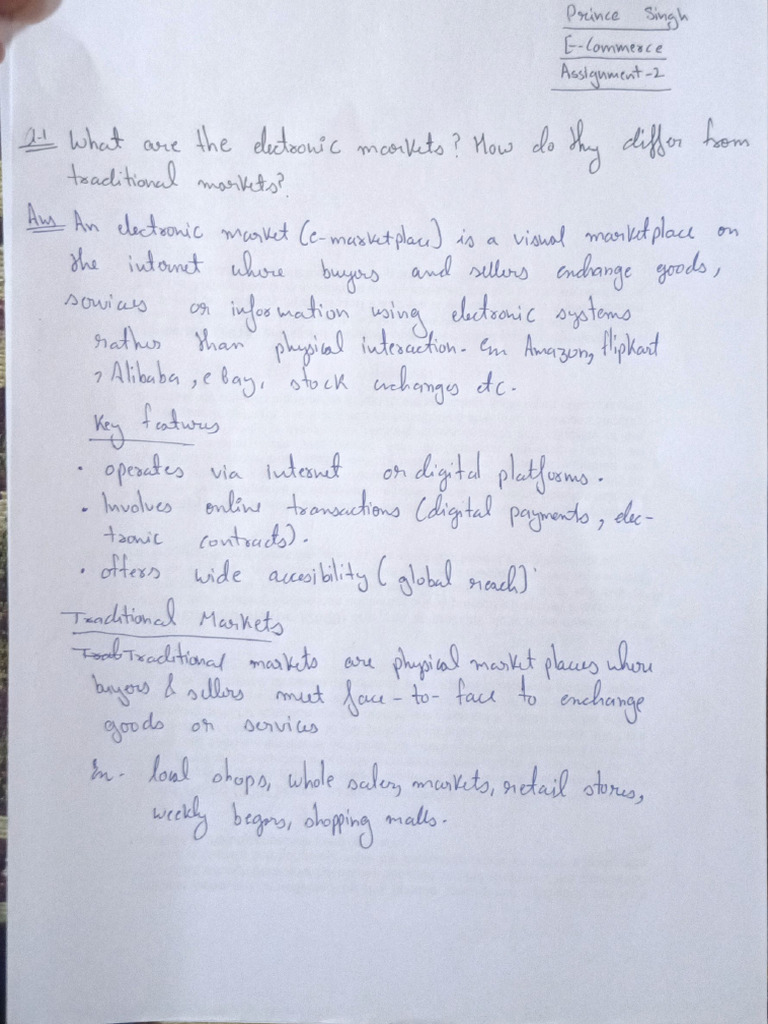 Prince Singh
E-Commerce
Assignment-2
Q-1 What are the electronic markets? How do thy differ from
traditional markets?
Ans An electronic market (e-marketplace) is a visual marketplace on
the internet where buyers and sellers exchange goods,
services or information using electronic systems
rather than physical interaction. Ex Amazon, flipkart
, Alibaba, e Bay, stock exchanges etc.
Key features
• operates via internet or digital platforms.
• Involves online transactions (digital payments, elec-
tronic contracts).
• offers wide accesibility (global reach)
Traditional Markets
Traditional markets are physical market places where
buyers & sellers meet face-to-face to exchange
goods or services
Ex. local shops, whole saler, markets, retail stores,
weekly shopping malls.